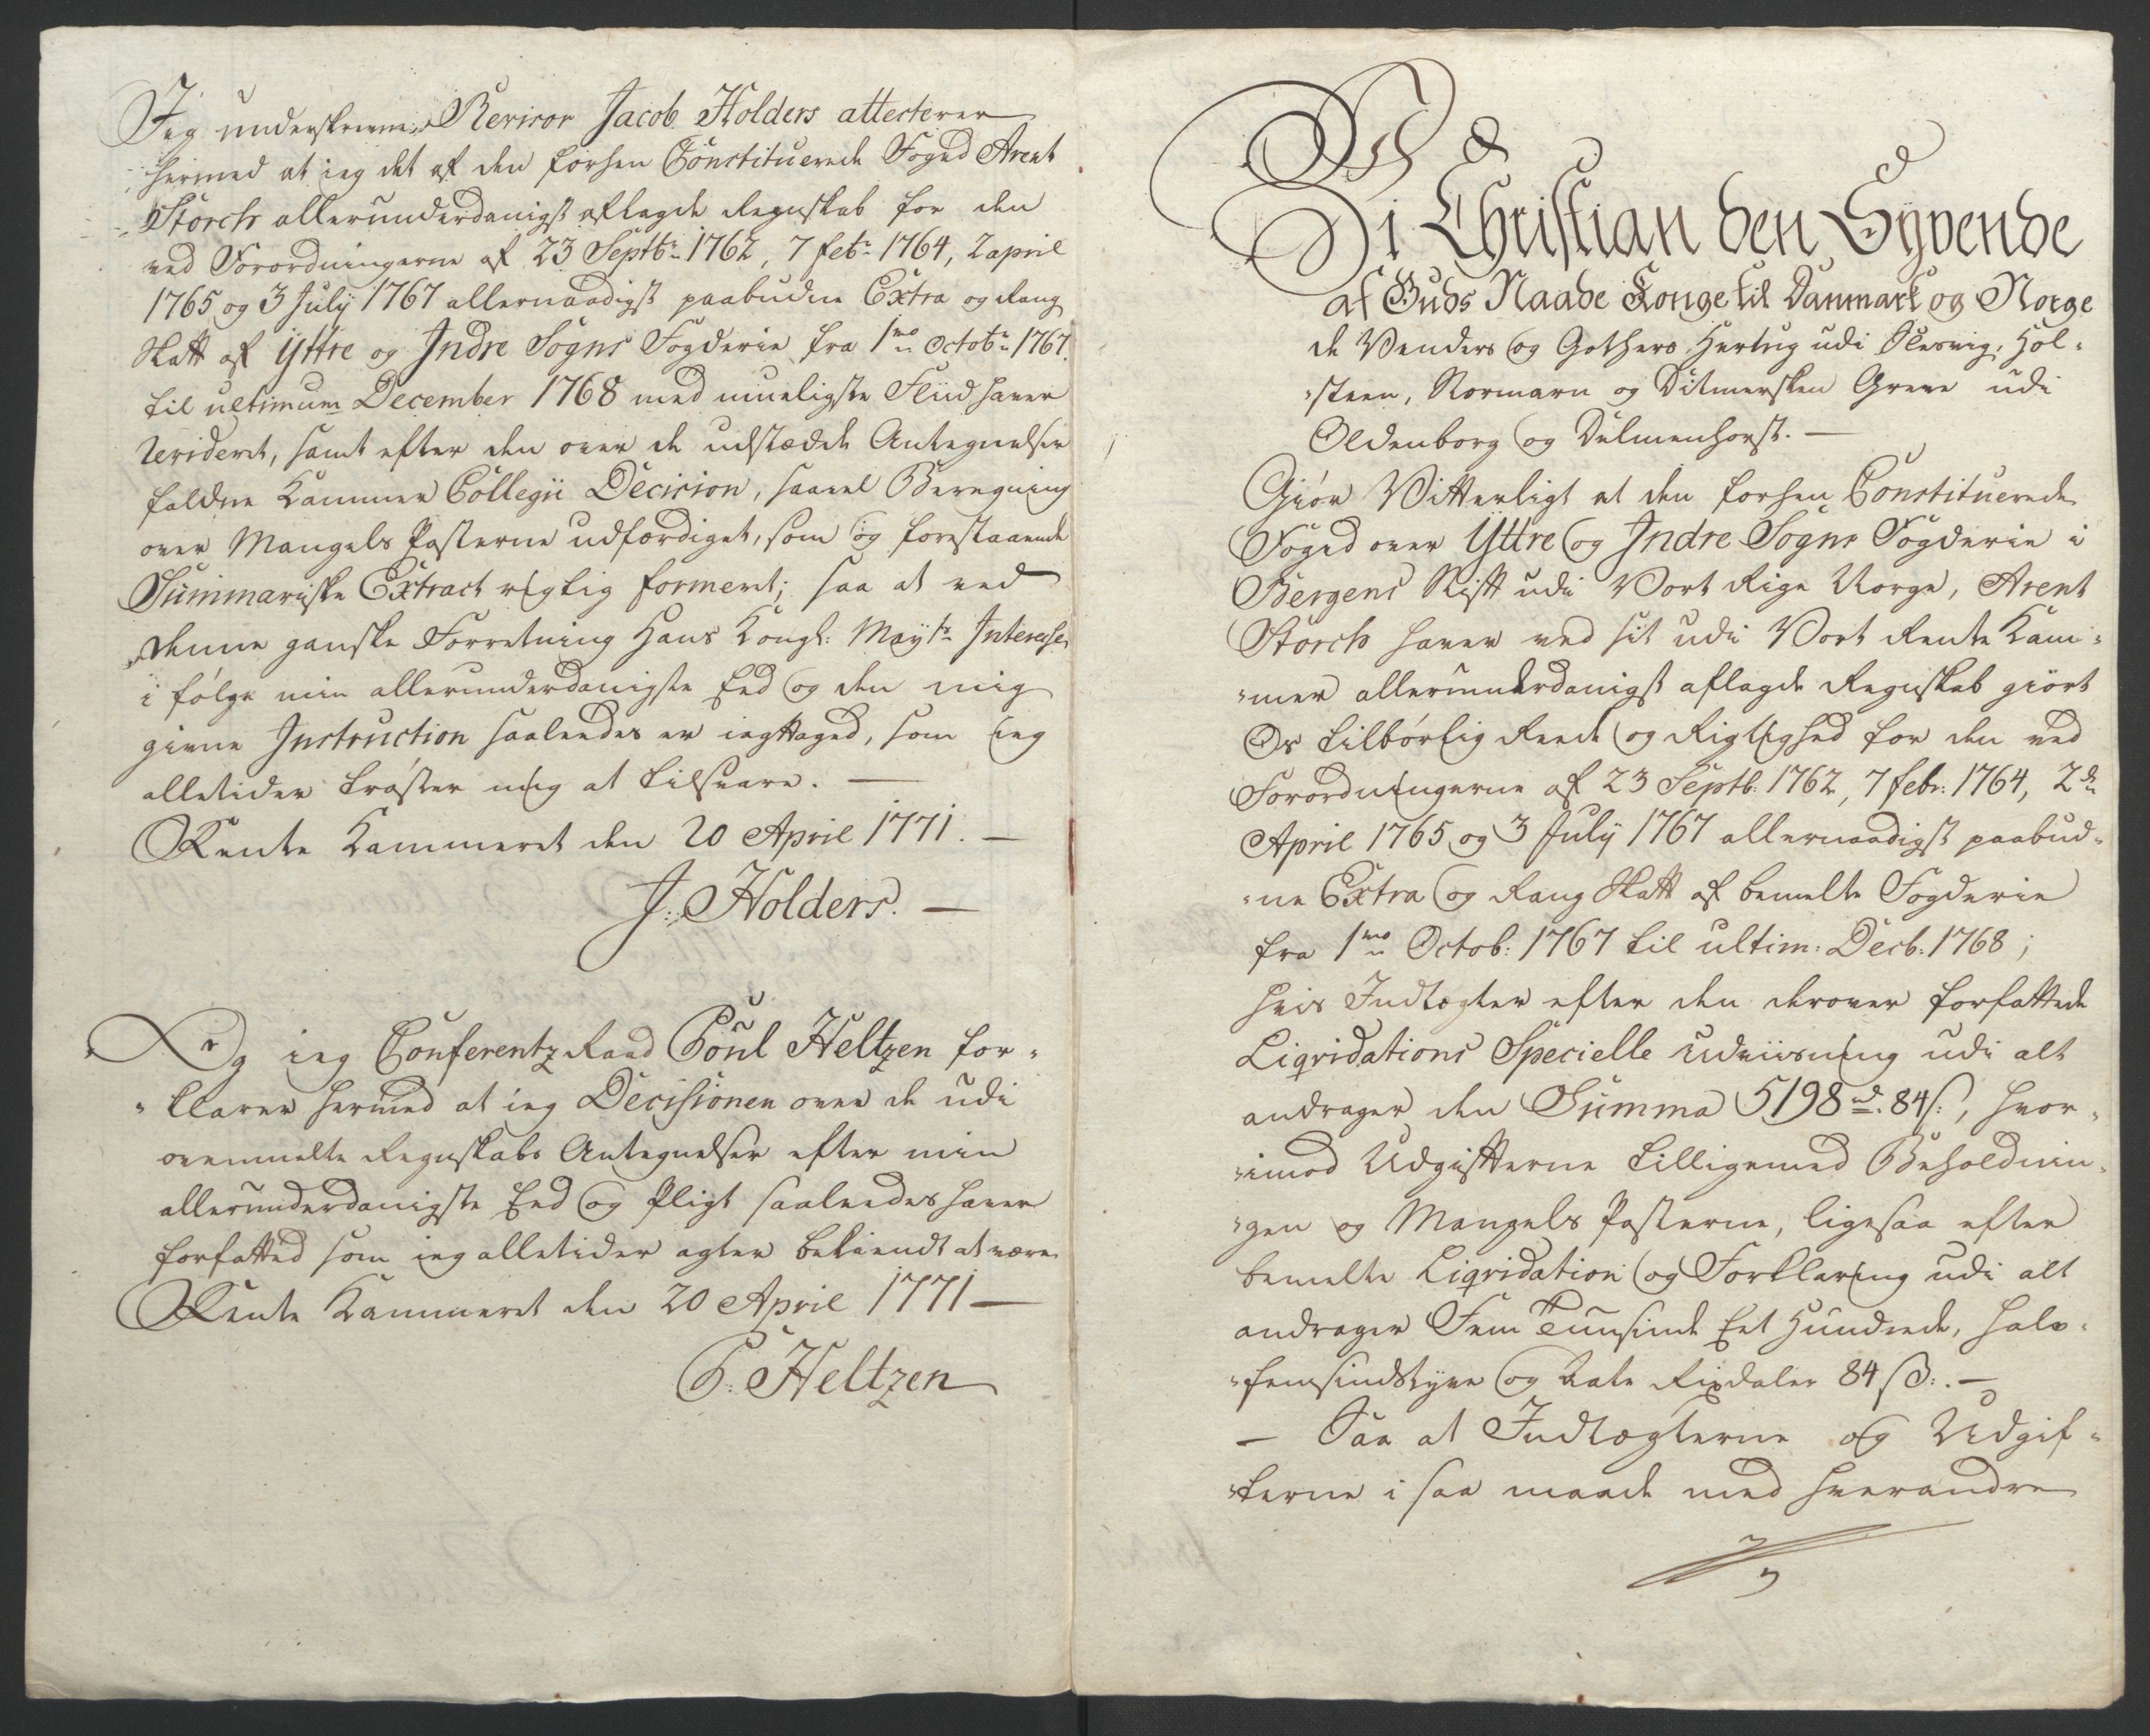 Jeg underskrevne Revisor Jacob Holders attesterer
hermed at jeg det af den forhen Constituerede Foged Arent
Storch allerunderdanigst aflagde Regnskab for den
ved Forordningerne af 23 Septbr: 1762, 7 febr: 1764, 2 april
1765 og 3 July 1767 allernaadigst paabudne Extra og Rang
Skatt af Yttre og Indre Sogns Fogderie fra 1mo Octobr: 1767.
til ultimum December 1768 med mueligste Fliid haver
revideret, samt efter den over de udstædde Antegnelser
faldne Kammer Collegii Decision, saavel Beregning
over Mangels Posterne udfærdiget, som og forestaaende
Summariske Extract rigtig formeret; saa at ved
denne ganske Forretning Hans Kongl: Mayts: Interesse
i følge min allerunderdanigste Eed og den mig
givne Instruction saaleedes er iagttaged, som jeg
alletider trøster mig at tilsvare. —
Rente Kammeret den 20 April 1771. —
J: Holders. —
Og jeg Conferentz Raad Poul Heltzen for-
klarer hermed at jeg Decisionen over de udi
ovenmelte Regnskabs Antegnelser efter min
allerunderdanigste Eed og Pligt saaleedes haver
forfatted som jeg alletider agter bekiendt at være
Rente Kammeret den 20 April 1771 —
P: Heltzen
Vi Christian den Syvende
af Guds Naade Konge til Danmark og Norge
de Venders og Gothers, Hertug udi Slesvig, Hol-
steen, Stormarn og Ditmersken Greve udi
Oldenborg og Delmenhorst. —
Giør Vitterligt at den forhen Constituerede
Foged over Yttre og Indre Sogns Fogderie i
Bergens Stift udi Vort Rige Norge, Arent
Storch haver ved sit udi Vort Rente Kam-
mer allerunderdanigst aflagde Regnskab giört
Os tilbørlig Reede og Rigtighed for den ved
Forordningerne af 23 Septb: 1762, 7 febr: 1764, 2de
April 1765 og 3 July 1767 allernaadigst paabud-
ne Extra og Rang Skatt af bemelte Fogderie
fra 1mo Octob: 1767 til ultim: Decb: 1768;
hvis Indtægter efter den derover forfattede
Liqvidations Specielle Udviisning udi alt
andrager den Summa 5198 rd. 84 s:, hvor-
imod Udgifterne tilligemed Beholdnin-
gen og Mangels Posterne, ligesaa efter
bemelte Liqvidation og Forklaring udi alt
andrager Fem Tuusinde Eet Hundrede, halv-
femsindstyve og Aate Rixdaler 84 ß:. —
— Saa at Indtægterne og Udgif-
terne i saa maade med hverandre